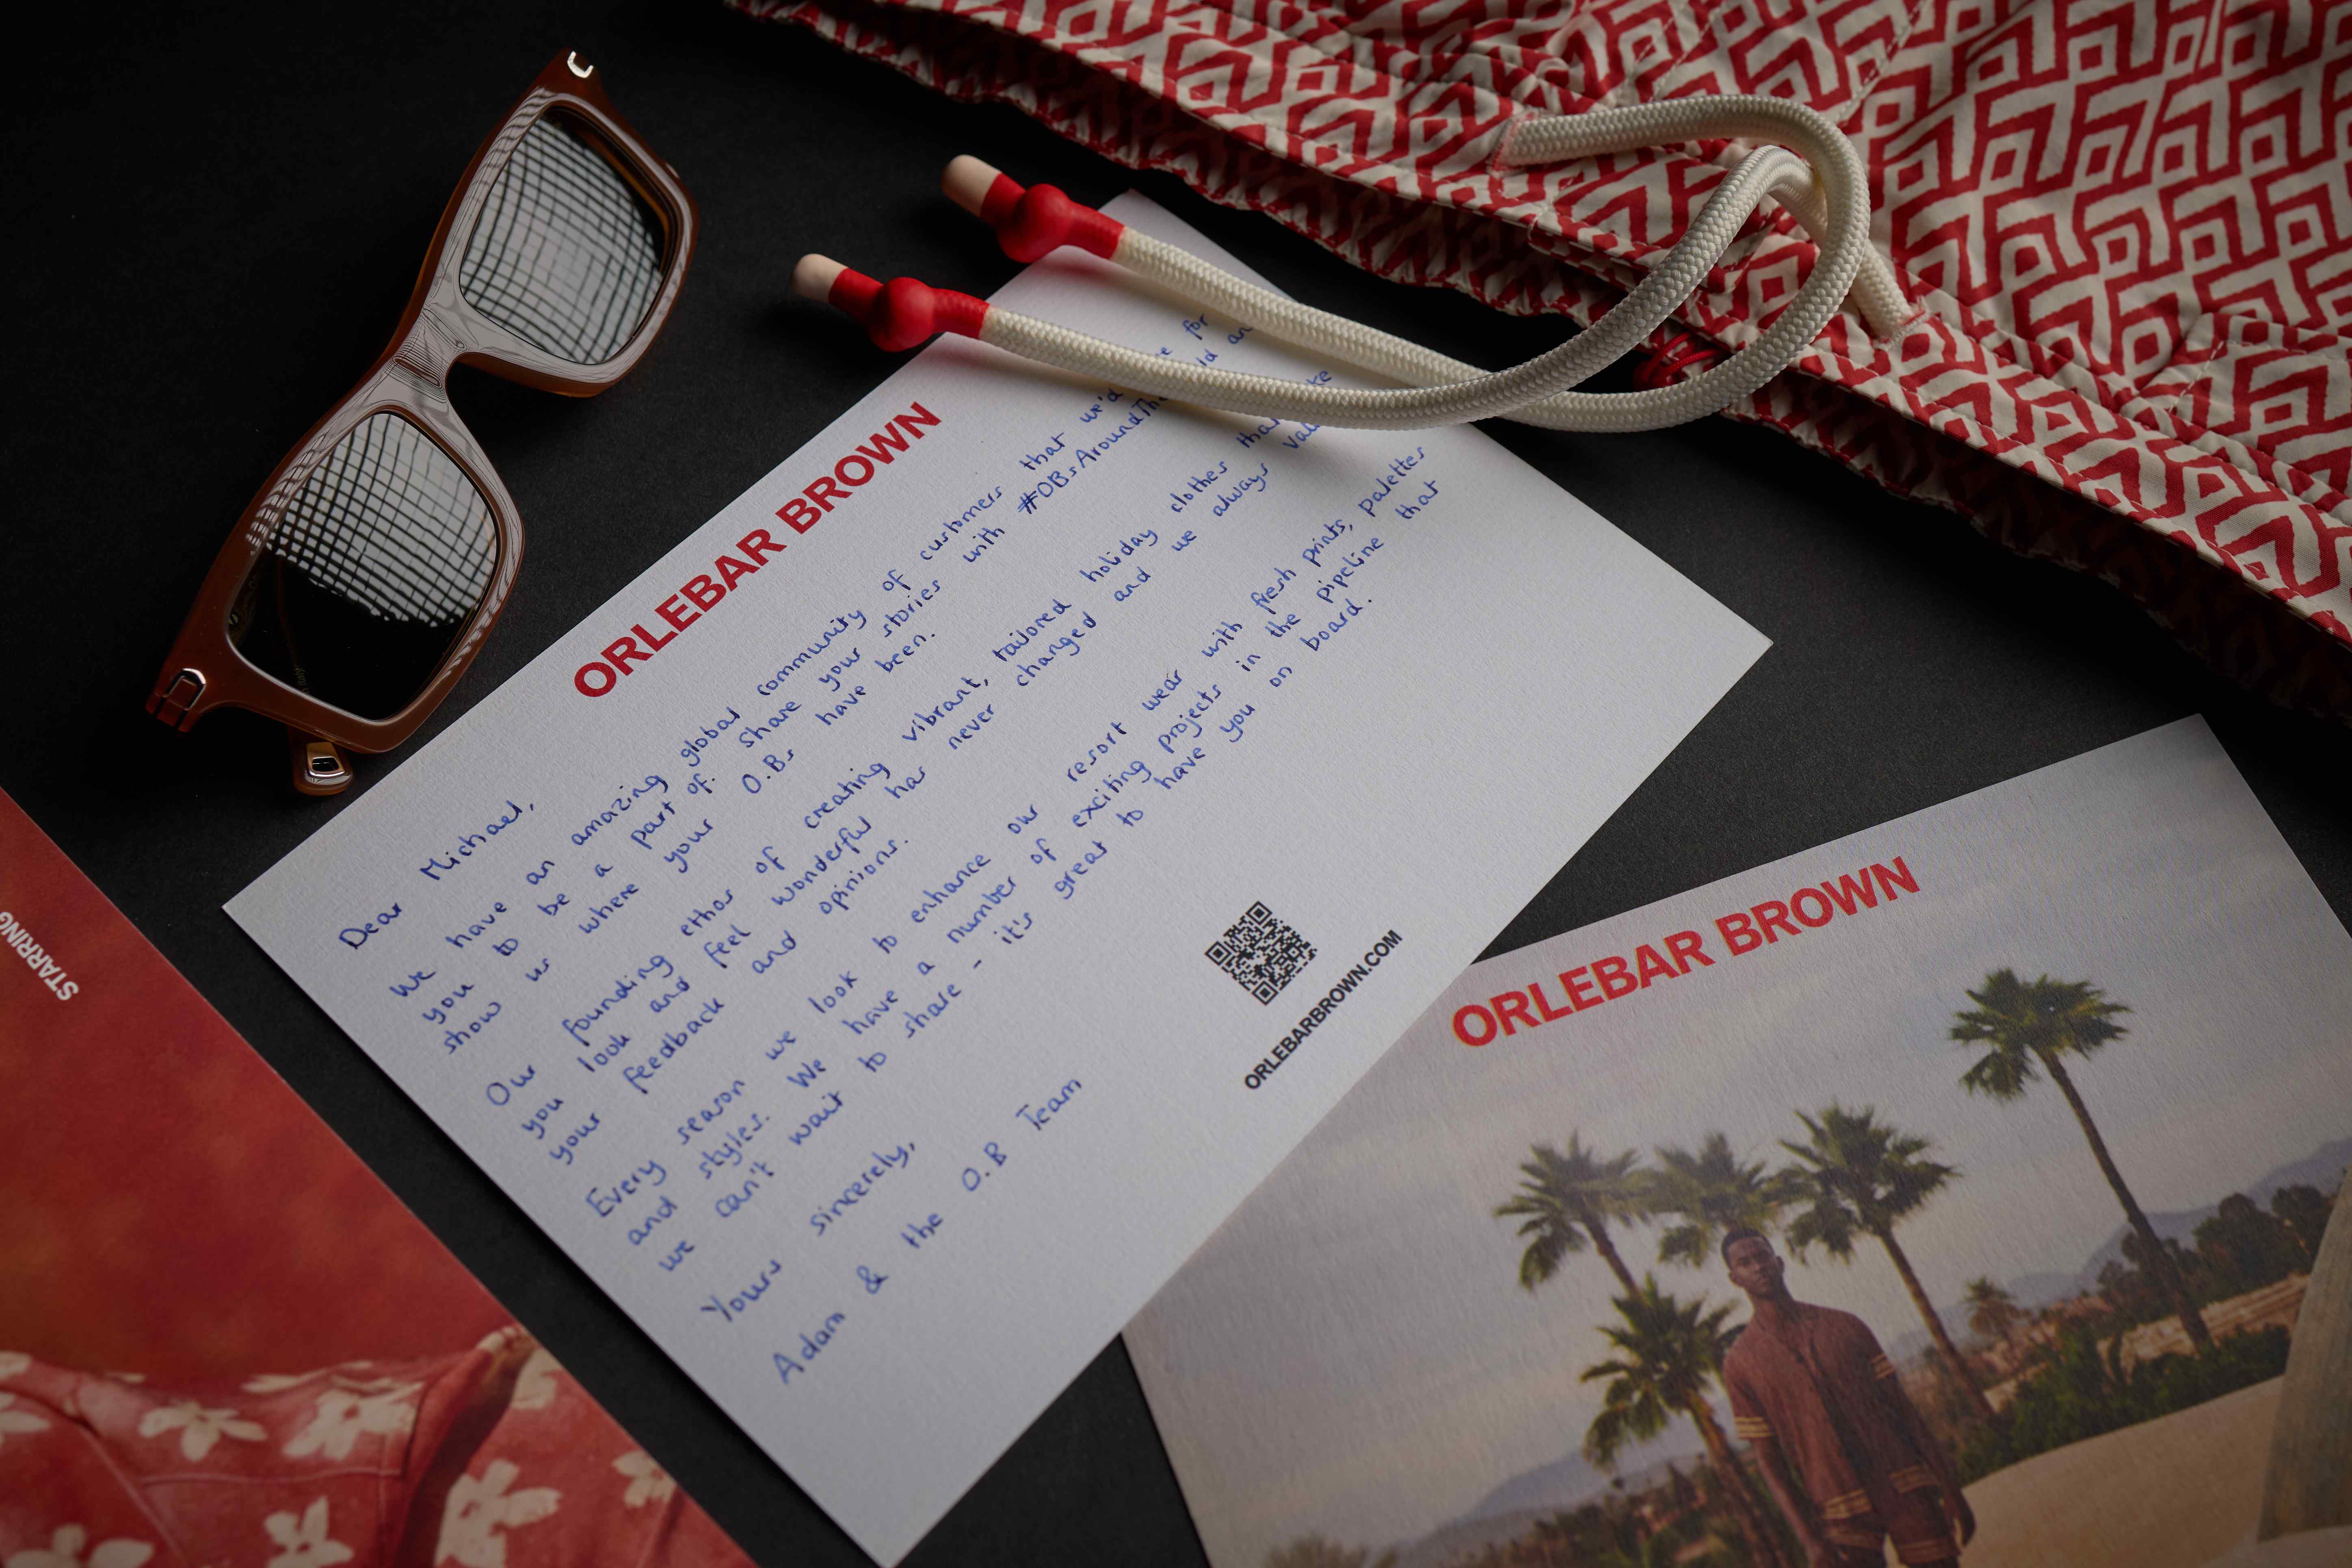 ORLEBAR BROWN
Dear Michael,
We have an amazing global community of customers that we'd for
you to be a part of. Share your stories with
show us where your O.Bs have been.
Our founding ethos of creating vibrant, tailored holiday clothes
you look and feel wonderful has never changed and we always
your feedback and opinions.
Every season we look to enhance our resort wear with fresh prints, palettes
and styles. We have a number of exciting projects in the pipeline that
we can't wait to share - it's great to have you on board.
Yours sincerely,
Adam & the O.B Team
ORLEBARBROWN.COM
ORLEBAR BROWN
STARRING